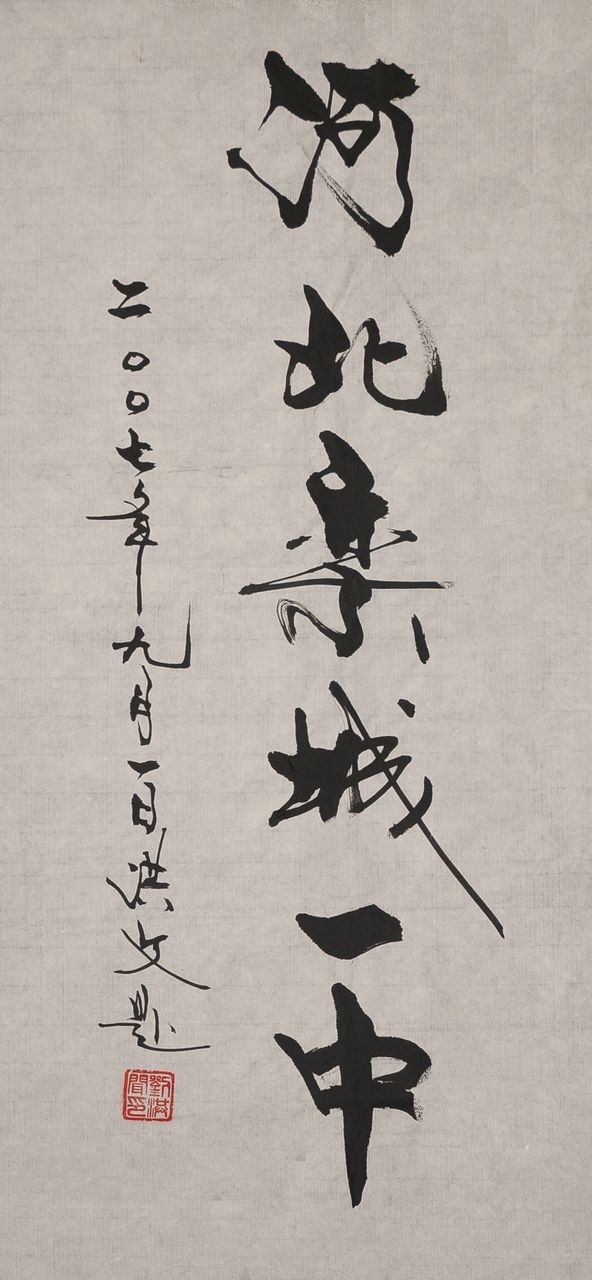 河北栾城一中
二〇〇七年九月一日洪文题
劉洪聞印